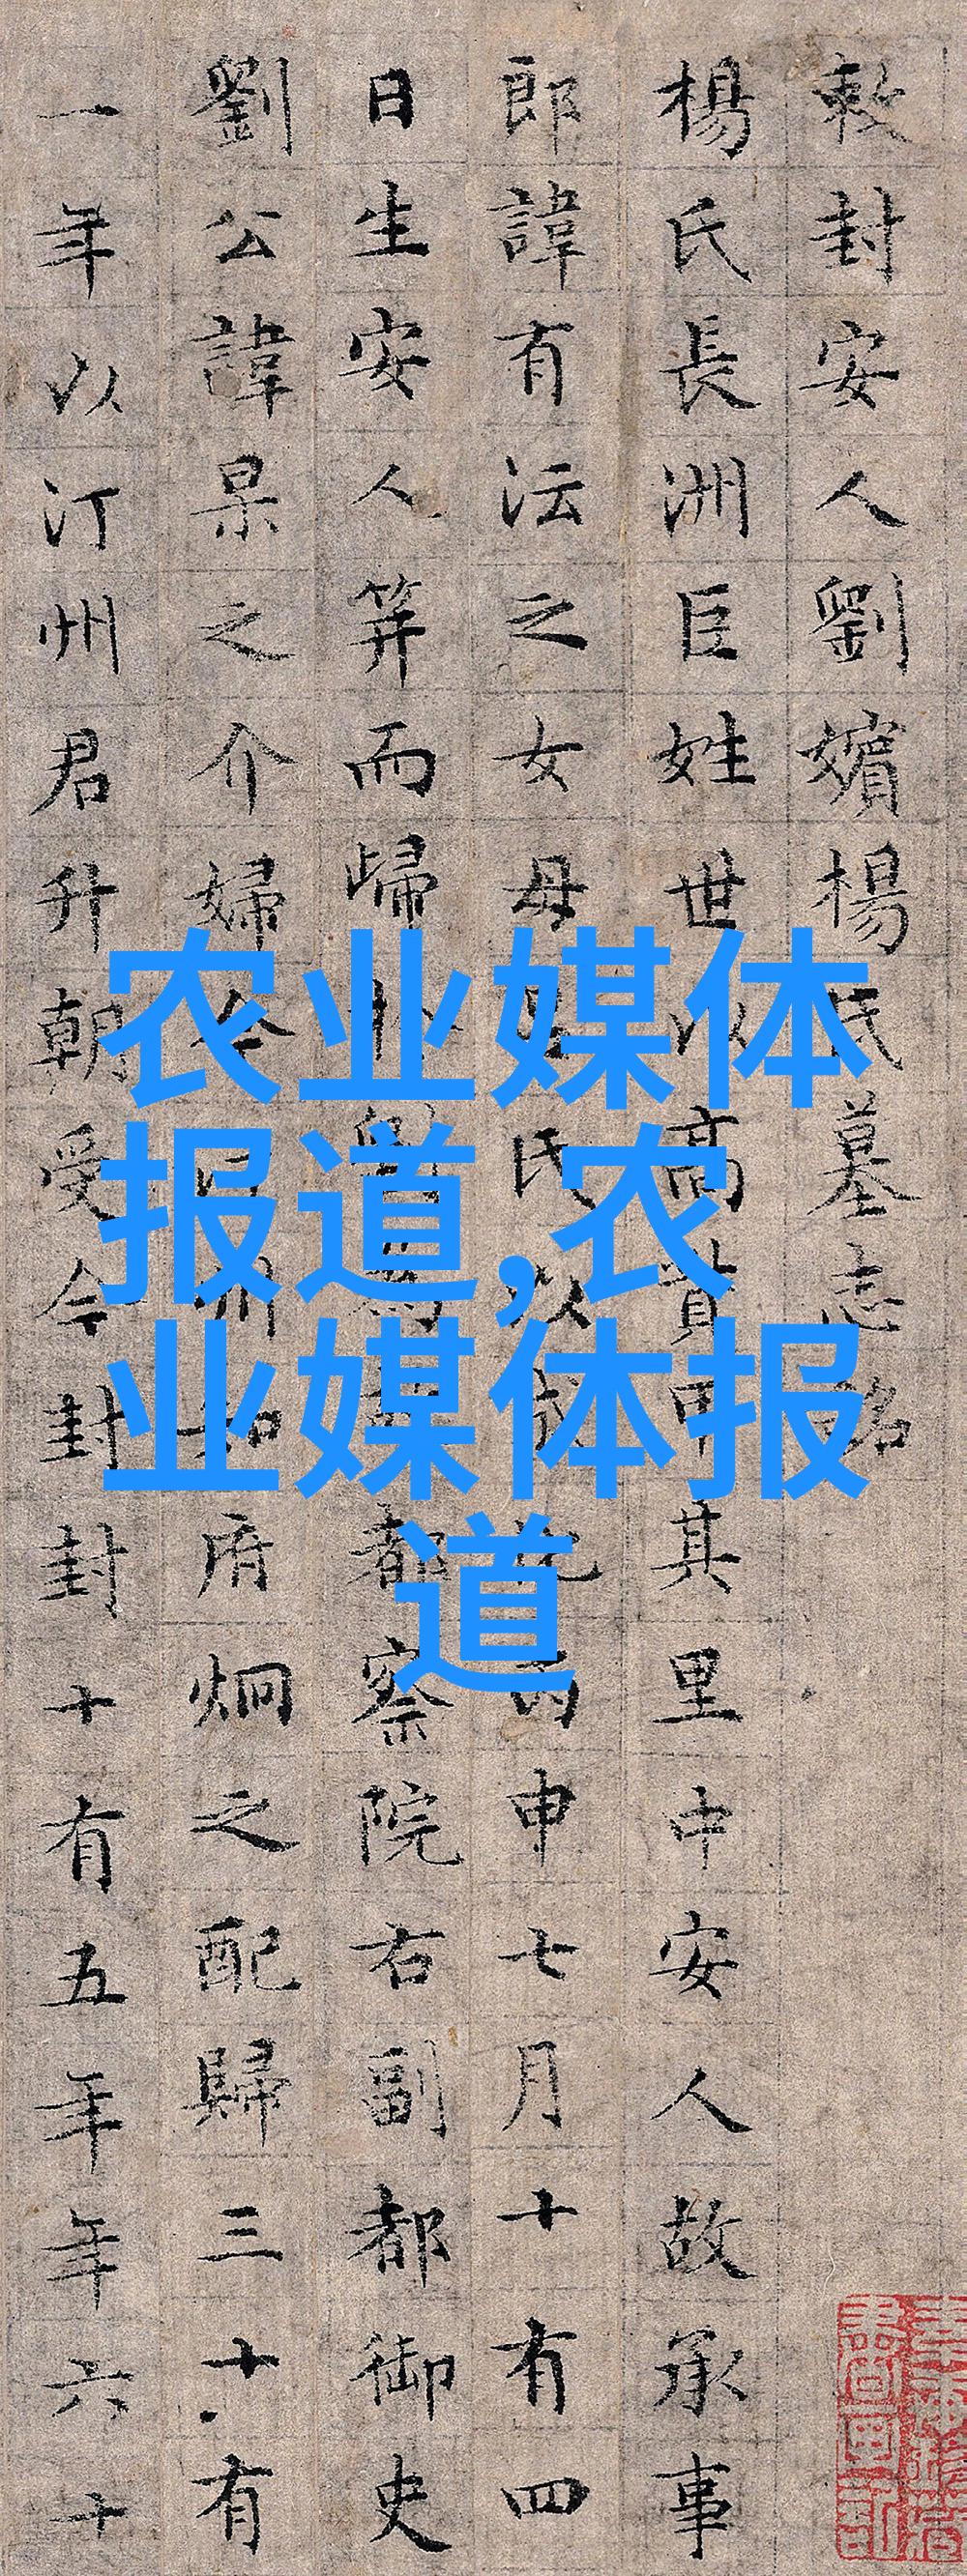 敕封安人劉嬪楊氏墓志銘
楊氏長洲巨姓世以高貲甲其里中安人故承事
郎諱有沄之女母氏以成化丙申七月十有四
日生安人笄而歸都察院右副都御史
劉公諱杲之介婦今汀州知府炯之配歸三十有
一年以汀州君升朝受今封封十有五年年六十
农业媒体
报道,农
业媒体报
道